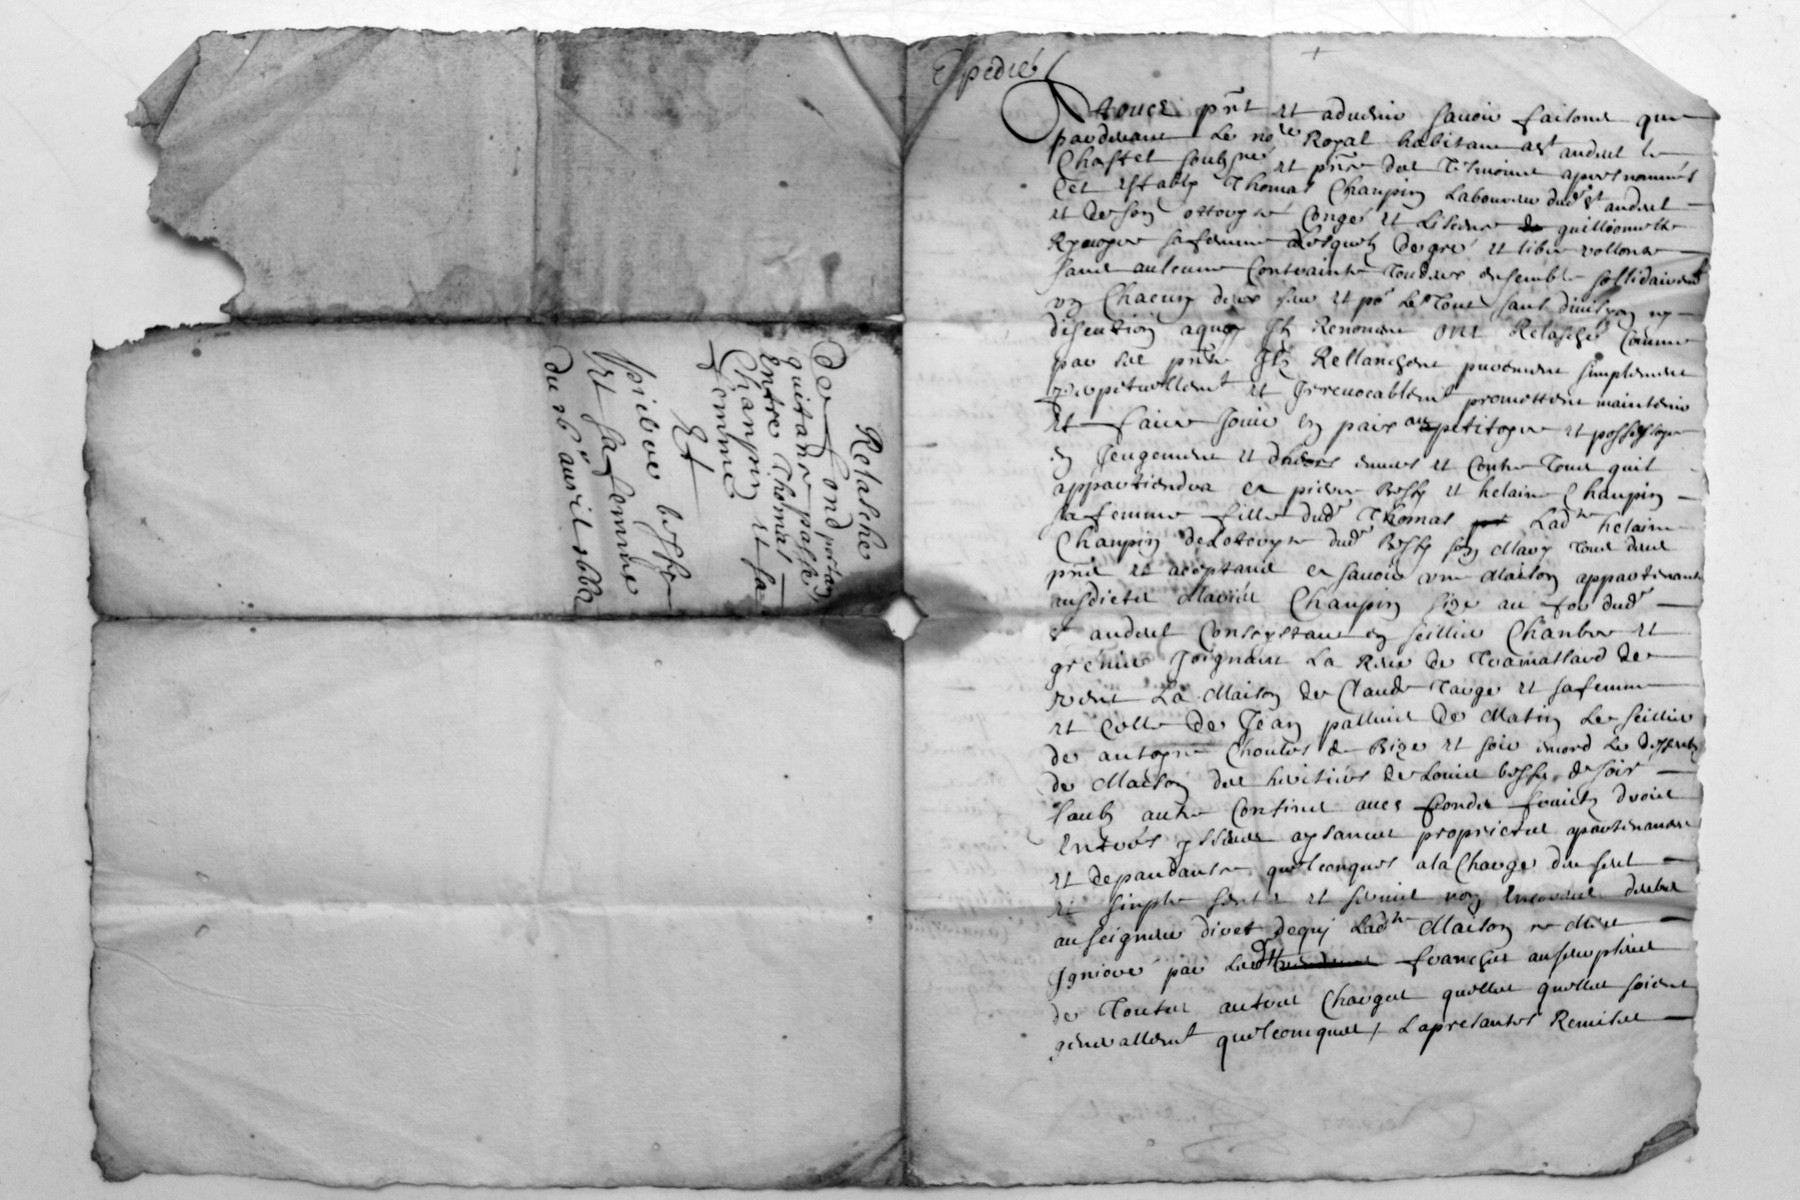 Relasche
de fond portant
quittance passée
Entre Thomas
Chanpin et sa
femme
Et
pierre besse
Et sa femme
du 26 auril 1662
Expedié
A tous pnt et aduenir sauoir faisons que
pardeuant Le nore Royal habitant a st andret le
Chastel soubzné et pnce des Tesmoins apres nommés
Cet establÿ Thomas Chanpin Laboureur dudt st andret
et de son ottoyze Congé et Lisence guillionnette
sa femme Lesquelz de gré et libre vollonte
sans aulcune Contrainte Toudeux ensemble sollidairement
vn Chacun deux seul et pr Le Tout sans diuision nÿ
discution aquoy Ilz Renoncent ont Relasché Comme
par set pnte Ilz Rellaschent purement simplement
perpetuellemt et Irreuocablemt promettent maintenir
et faire Jouir en paix au petitoyre et possessoyre
en Jeugement et dhors enuers et Contre Tous quil
appartiendra a pierre Besse et helaine Chanpin
sa femme fille dudt Thomas Ladte helaine
Chanpin de Lottoyze dudt Besse son Mary Tous deux
pnts et aceptans a sauoir vne Maison appartenant
ausdicts Mariés Chanpin size au for dudt
st andret Consistant en seillier Chanbre et
grenier Joignant La Riue de Tramassard de
vent La Maison de Claude Tauge et sa femme
et Celle de Jean de Matin Le seillier
de antoyne de Bize et soir
de Maison des heritiers de Louise besse de soir
saulz autre Confins auec fondz fruictz droict
Entrées yssues aysances proprietes apartenances
et dependantes quelconques a la Charge du seul
et simple et seruice non Encores deubz
au seigneur diuet dequÿ Ladte Maison se Meut
Igniore par Led franche au surplus
de Toutes autres Charges quelles quelles soient
generallemt quelconques / Lapresantes Remise